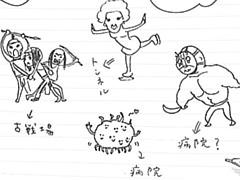 トンネル
古戦場
病院?
病院